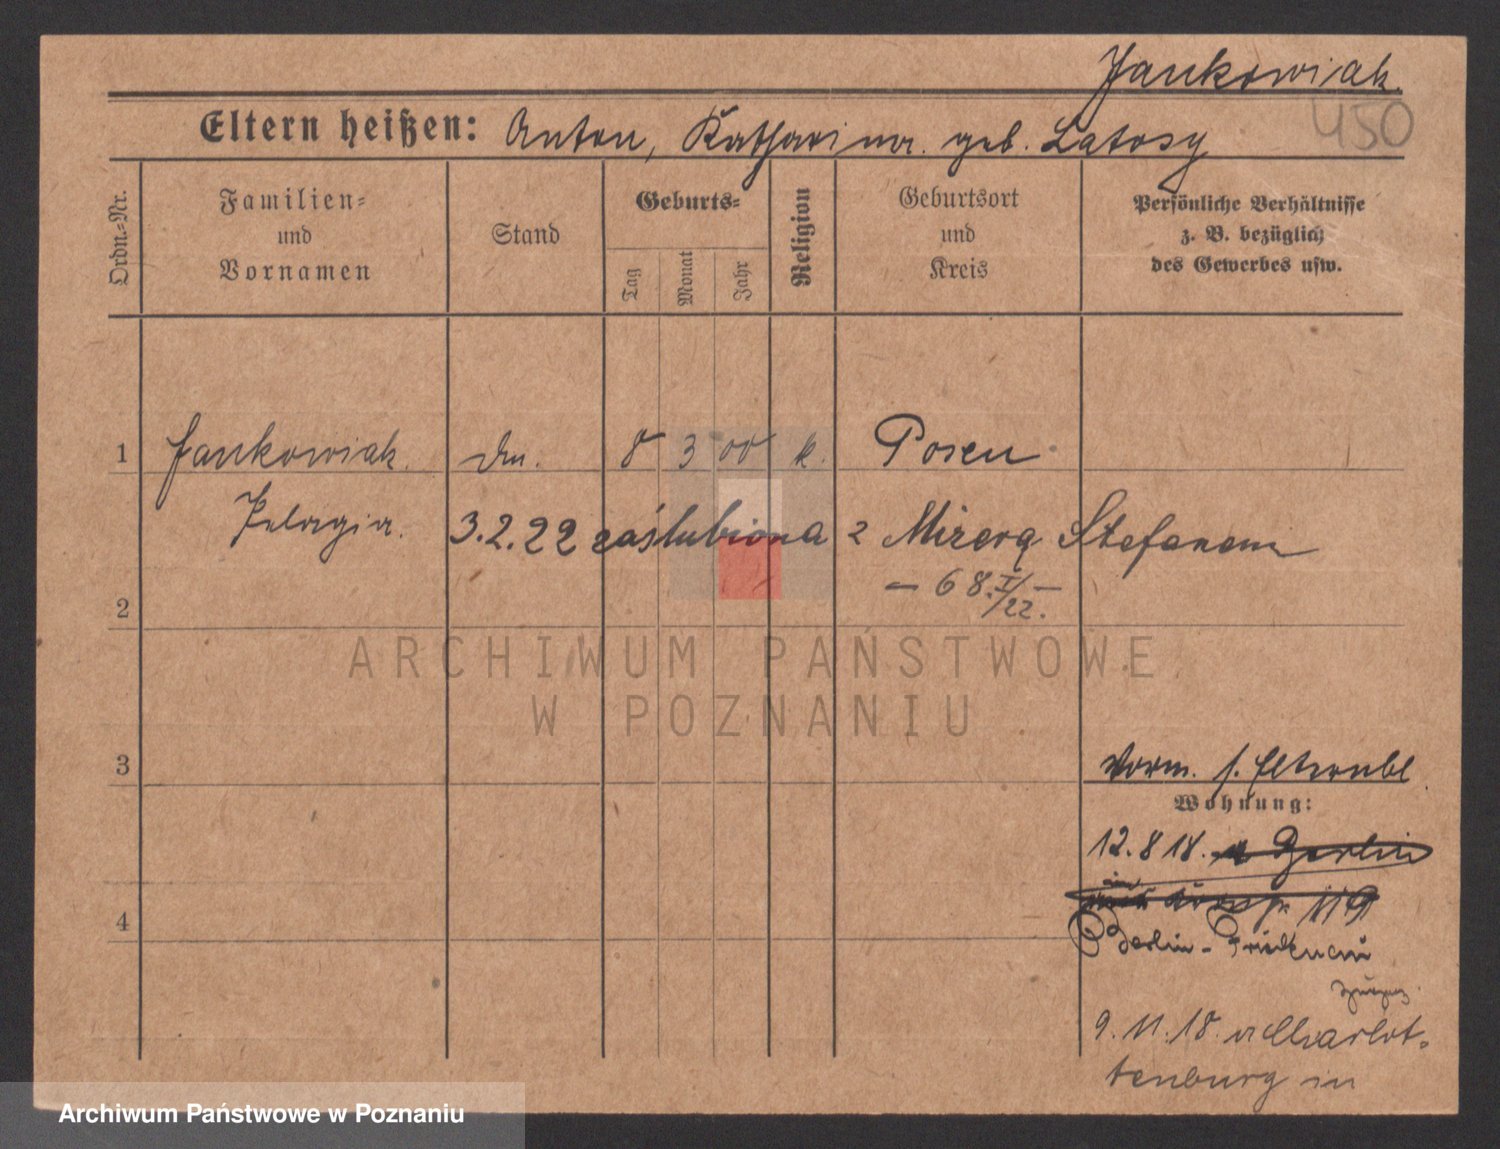 Jankowiak.
450
Eltern heißen: Anton, Katharina. geb. Latosy
Ordn.-Nr.
Familien-
und
Vornamen
Stand
Geburts-
Tag
Monat
Jahr
Religion
Geburtsort
und
Kreis
Persönliche Verhältnisse
z. B. bezüglich
des Gewerbes usw.
1 Jankowiak. 8 3 00 k. Posen
Pelagia. 3.2.22 zaślubiona z Mizerą Stefanem
— 68. I/22. —
2
ARCHIWUM PAŃSTWOWE
W POZNANIU
3
Vorm. s. Elternbl.
Wohnung:
12.8 18. n Berlin
119
4
Berlin-Friedenau
9.11.18. n Charlot-
tenburg in
Archiwum Państwowe w Poznaniu